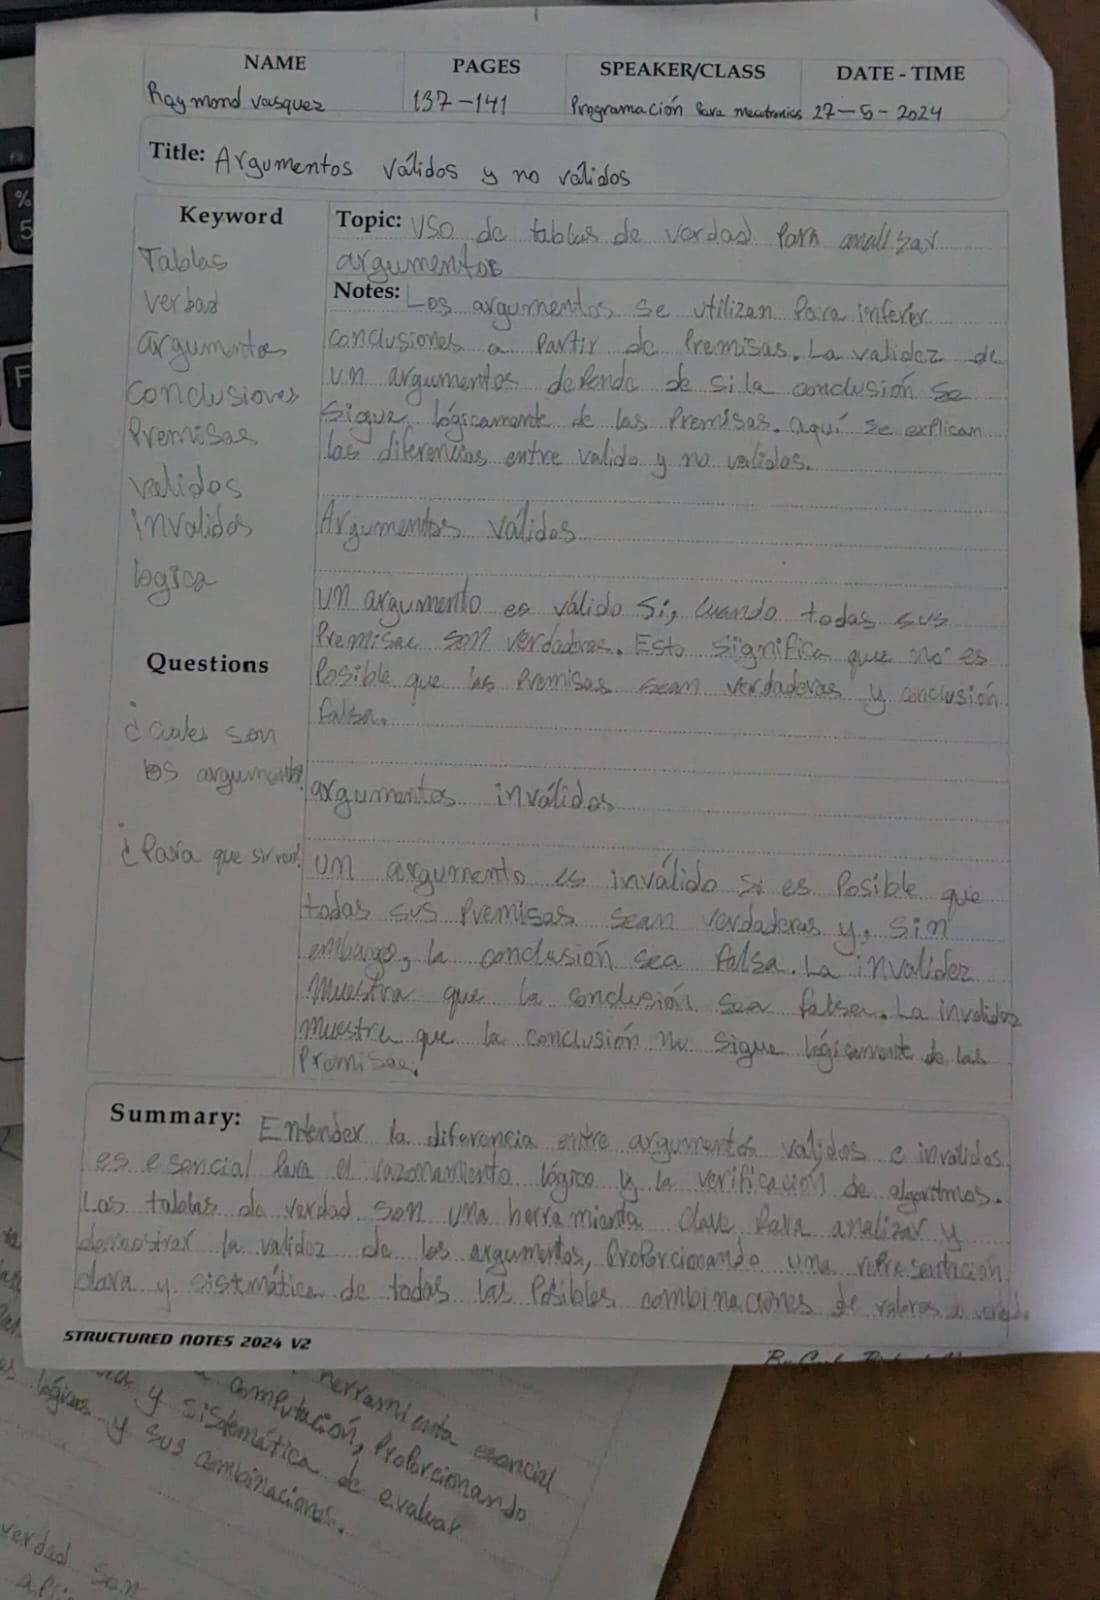 NAME PAGES SPEAKER/CLASS DATE - TIME
Raymond vasquez 137-141 Programación Para mecatronics 27-5-2024
Title: Argumentos válidos y no válidos
Keyword
Tablas
verbad
argumentos
Conclusiones
Premisas
validos
invalidos
logica
Questions
¿Cuales son
los argumentos?
¿Para que sirven?
Topic: USO de tablas de verdad Para analizar
argumentos
Notes: Los argumentos se utilizan Para inferir
conclusiones a Partir de Premisas. La validez de
un argumentos depende de si la conclusión se
sigue lógicamente de las Premisas. aquí se explican
las diferencias entre valido y no validos.
Argumentos válidos
un argumento es válido Si, cuando todas sus
Premisas son verdaderas. Esto significa que no es
Posible que las Premisas sean verdaderas y conclusión
falsa.
argumentos inválidos
un argumento es inválido si es Posible que
todas sus Premisas sean verdaderas y, sin
embargo, la conclusión sea falsa. La invalidez
muestra que la conclusión sea falsa. La invalidez
muestra que la conclusión no sigue lógicamente de las
Premisas.
Summary: Entender la diferencia entre argumentos validos e invalidos
es esencial Para el razonamiento lógico y la verificación de algoritmos.
Las tablas de verdad son una herramienta clave Para analizar y
demostrar la validez de los argumentos, Proporcionando una representación
clara y sistemática de todas las Posibles combinaciones de valores de verdad.
STRUCTURED NOTES 2024 V2
herramienta esencial
computación, Proporcionando
y sistemática de evaluar
lógicas y sus combinaciones.
verdad son